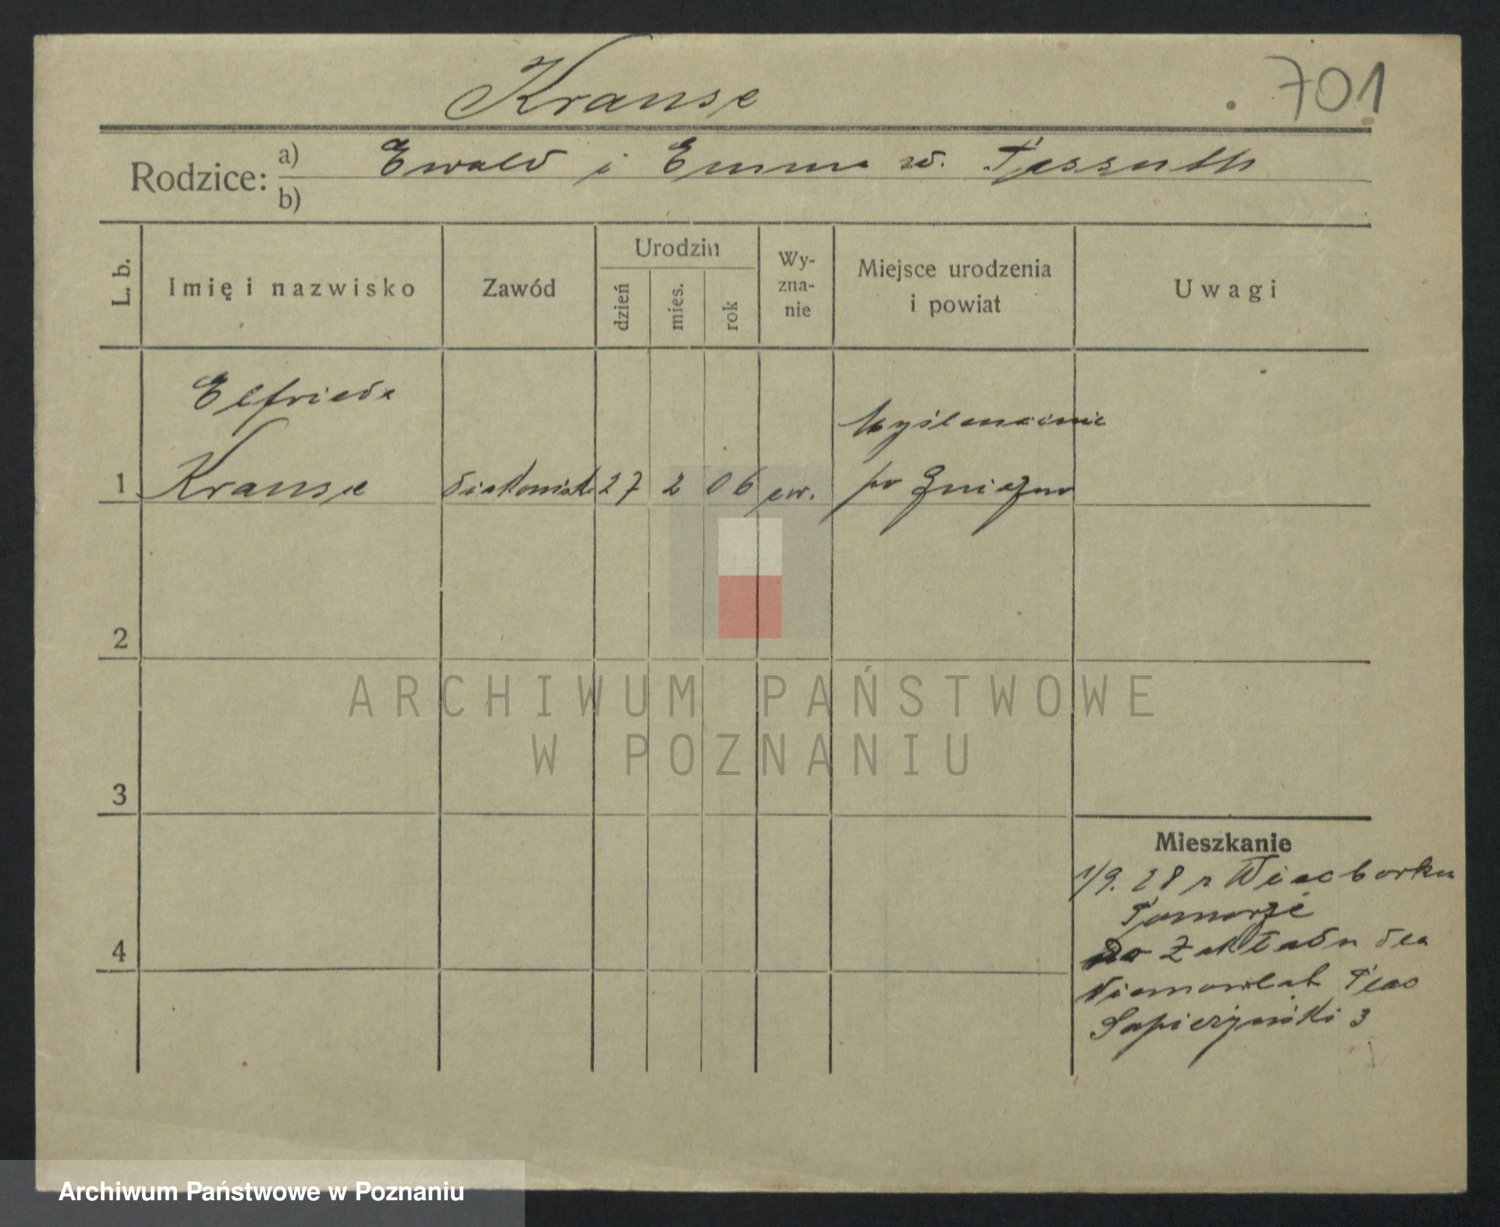 Krause
701
Rodzice: a) Ewald i Emma zd.
b)
L. b.
Imię i nazwisko
Zawód
Urodzin
dzień
mies.
rok
Wy-
zna-
nie
Miejsce urodzenia
i powiat
Uwagi
Elfrieda
1 Krause diakoniska 27 2 06 ew. po Gniezno
2
3
4
Mieszkanie
1/9. 28 z Więcborka
Pomorze
do Zakładu dla
Niemowląt Plac
Sapieżyński 3
ARCHIWUM PAŃSTWOWE
W POZNANIU
Archiwum Państwowe w Poznaniu